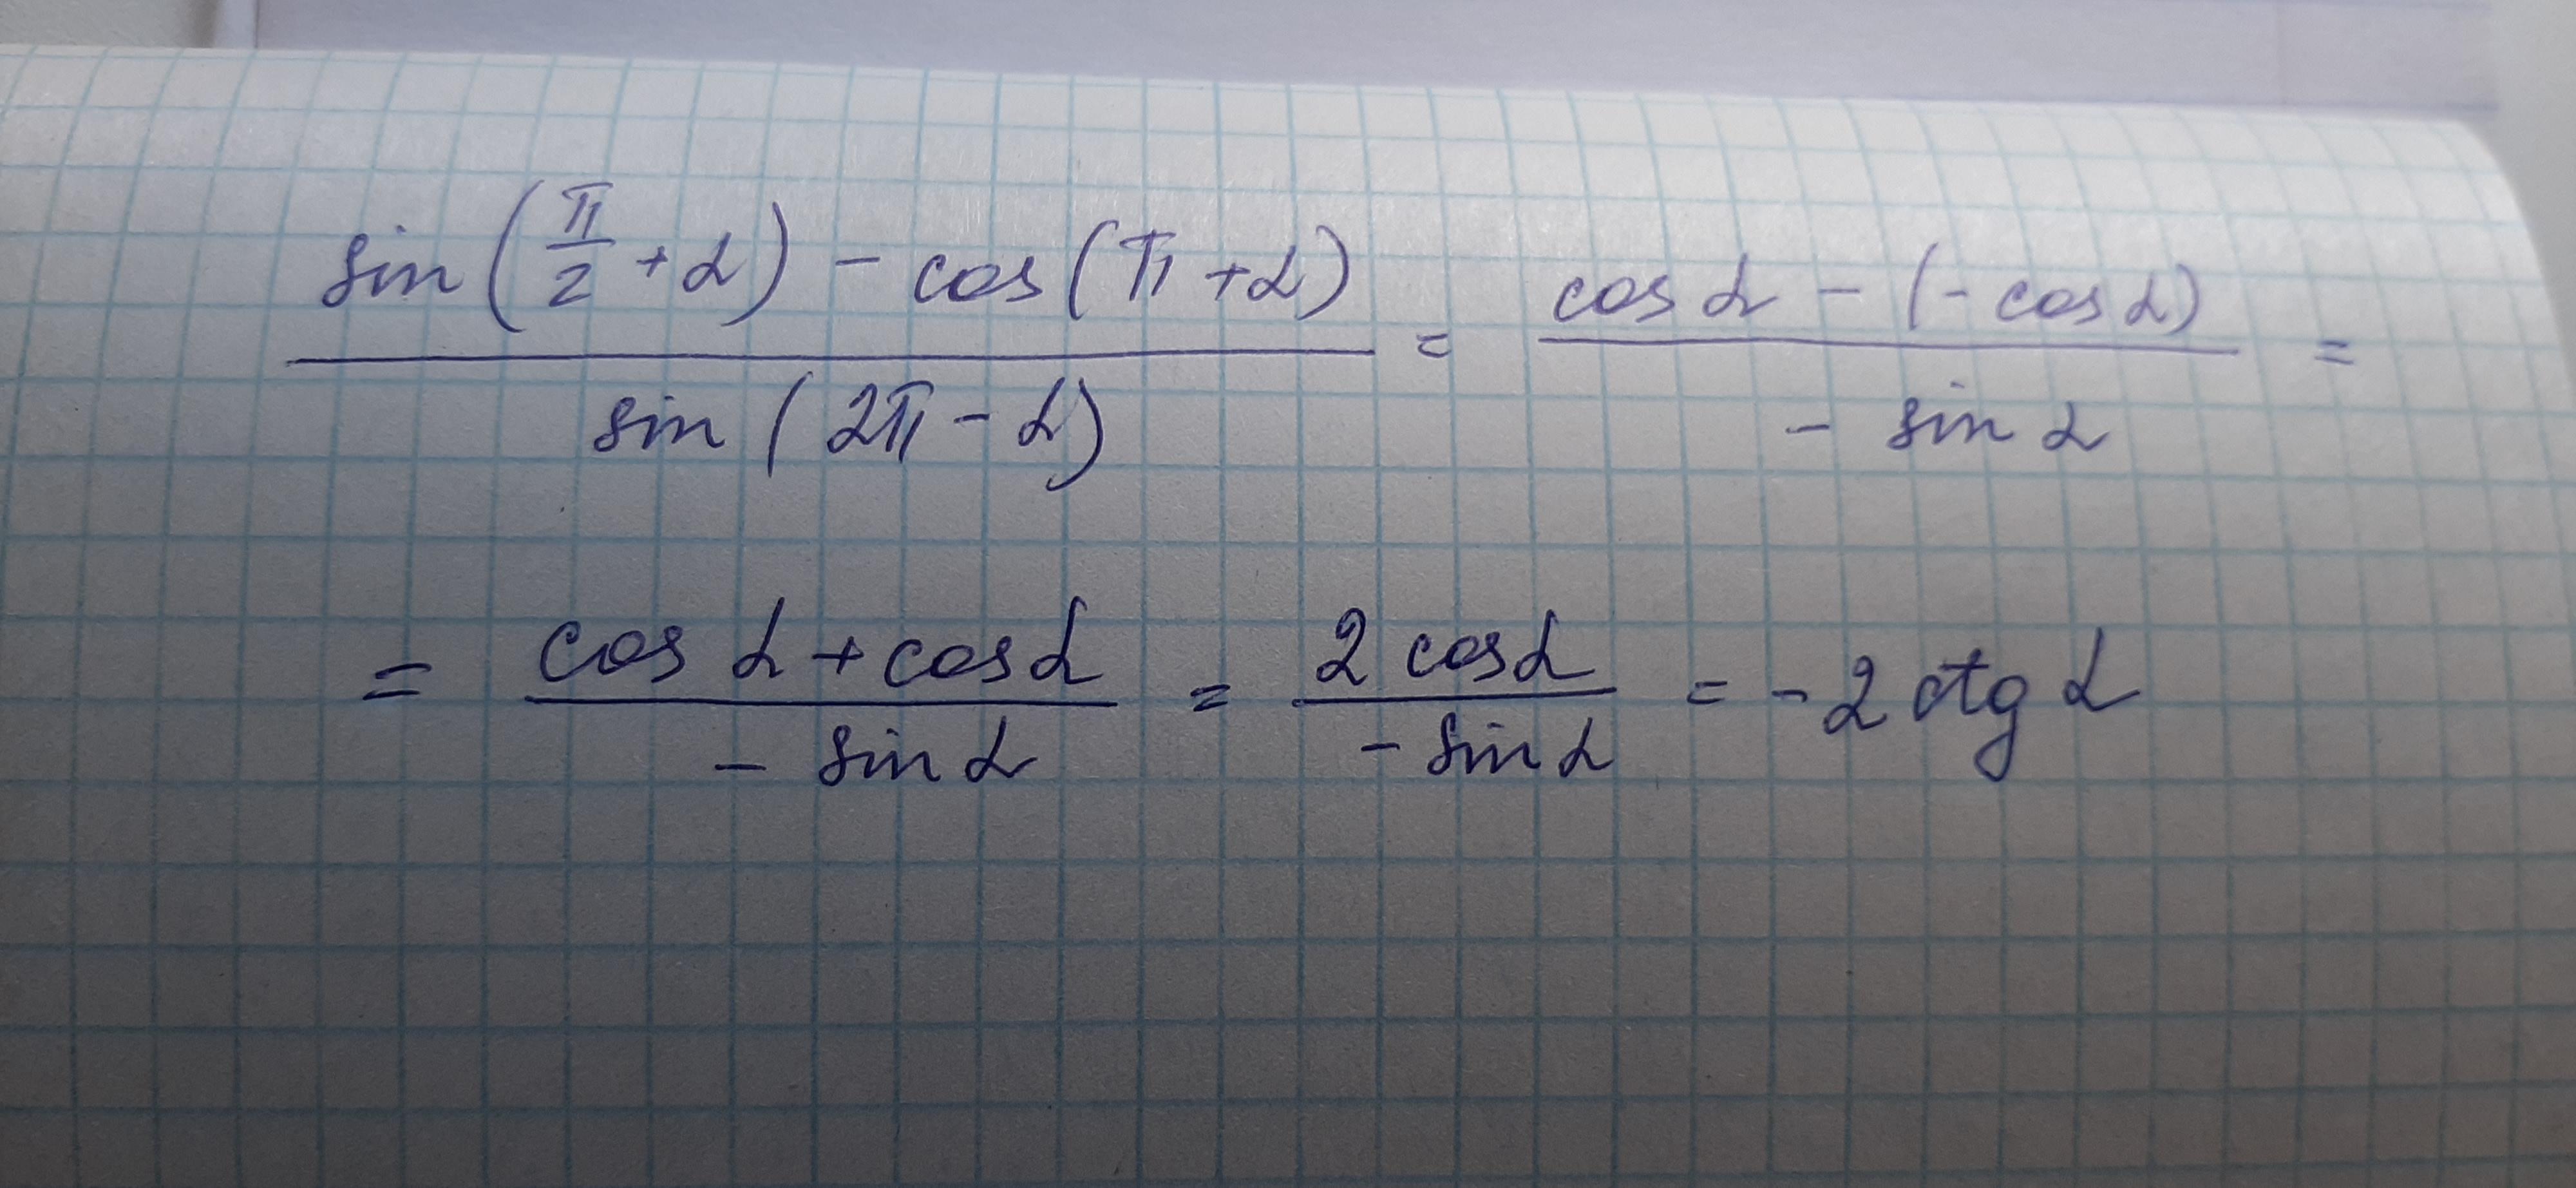 sin(π/2 + α) - cos(π + α) / sin(2π - α) = cos α - (- cos α) / - sin α =
= cos α + cos α / - sin α = 2 cos α / - sin α = - 2 ctg α